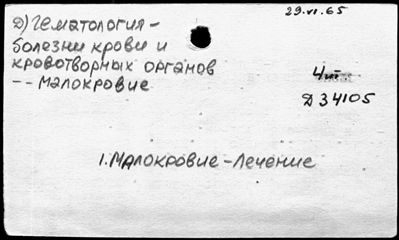 29.VI.65
Д) Гематология -
болезни крови и
кровотворных органов
-- Малокровие
Д34105
1. Малокровие - Лечение